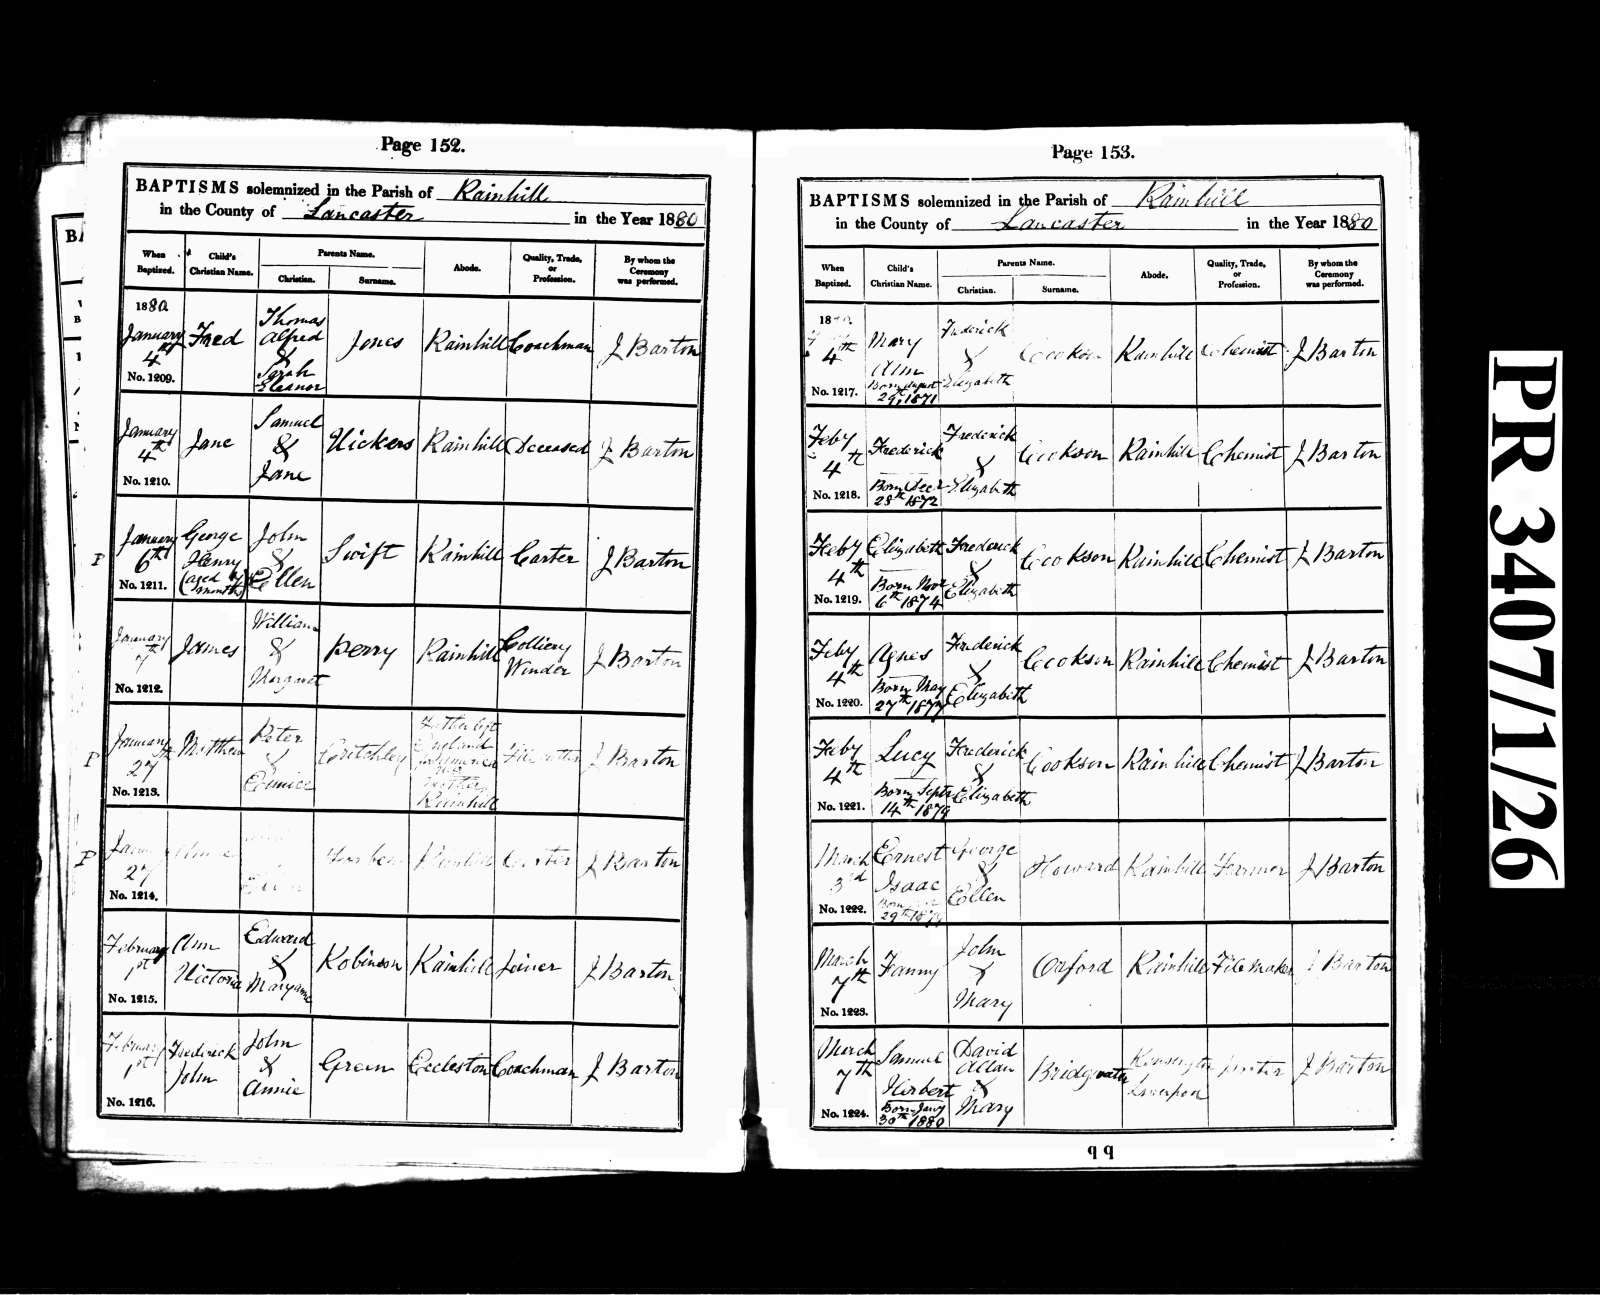 Page 152.
BAPTISMS solemnized in the Parish of Rainhill
in the County of Lancaster in the Year 1880
When Baptized.
Child's Christian Name.
Parents Name.
Christian.
Surname.
Abode.
Quality, Trade, or Profession.
By whom the Ceremony was performed.
1880
January 4th
No. 1209.
Fred
Thomas Alfred & Sarah Eleanor
Jones
Rainhill
Coachman
J Barton
January 4th
No. 1210.
Jane
Samuel & Jane
Vickers
Rainhill
Deceased
J Barton
P
January 6th
No. 1211.
George Henry
(aged months)
John & Ellen
Swift
Rainhill
Carter
J Barton
January 7th
No. 1212.
James
William & Margaret
Perry
Rainhill
Colliery Winder
J Barton
P
January 27
No. 1213.
Matthew
Peter & Eunice
Critchley
Father left England
Mother Rainhill
J Barton
P
27
No. 1214.
Carter
J Barton
February 1st
No. 1215.
Ann Victoria
Edward & Maryanne
Robinson
Rainhill
Joiner
J Barton
February 1st
No. 1216.
Frederick John
John & Annie
Green
Eccleston
Coachman
J Barton
Page 153.
BAPTISMS solemnized in the Parish of Rainhill
in the County of Lancaster in the Year 1880
When Baptized.
Child's Christian Name.
Parents Name.
Christian.
Surname.
Abode.
Quality, Trade, or Profession.
By whom the Ceremony was performed.
18
4th
No. 1217.
Mary Ann
Born August 29th, 1871
Frederick & Elizabeth
Cookson
Rainhill
Chemist
J Barton
Feby 4th
No. 1218.
Frederick
Born Decr 28th 1872
Frederick & Elizabeth
Cookson
Rainhill
Chemist
J Barton
Feby 4th
No. 1219.
Elizabeth
Born Novr 6th 1874
Frederick & Elizabeth
Cookson
Rainhill
Chemist
J Barton
Feby 4th
No. 1220.
Agnes
Born May 27th 1877
Frederick & Elizabeth
Cookson
Rainhill
Chemist
J Barton
Feby 4th
No. 1221.
Lucy
Born Septr 14th 1879
Frederick & Elizabeth
Cookson
Rainhill
Chemist
J Barton
March 3rd
No. 1222.
Ernest Isaac
Born 29th 1879
George & Ellen
Howard
Rainhill
Farmer
J Barton
March 7th
No. 1223.
Fanny
John & Mary
Oxford
Rainhill
File Maker
J Barton
March 7th
No. 1224.
Samuel Herbert
Born Jany 30th 1880
David Allan & Mary
Bridgewater
Kensington Liverpool
Porter
J Barton
PR 3407/1/26